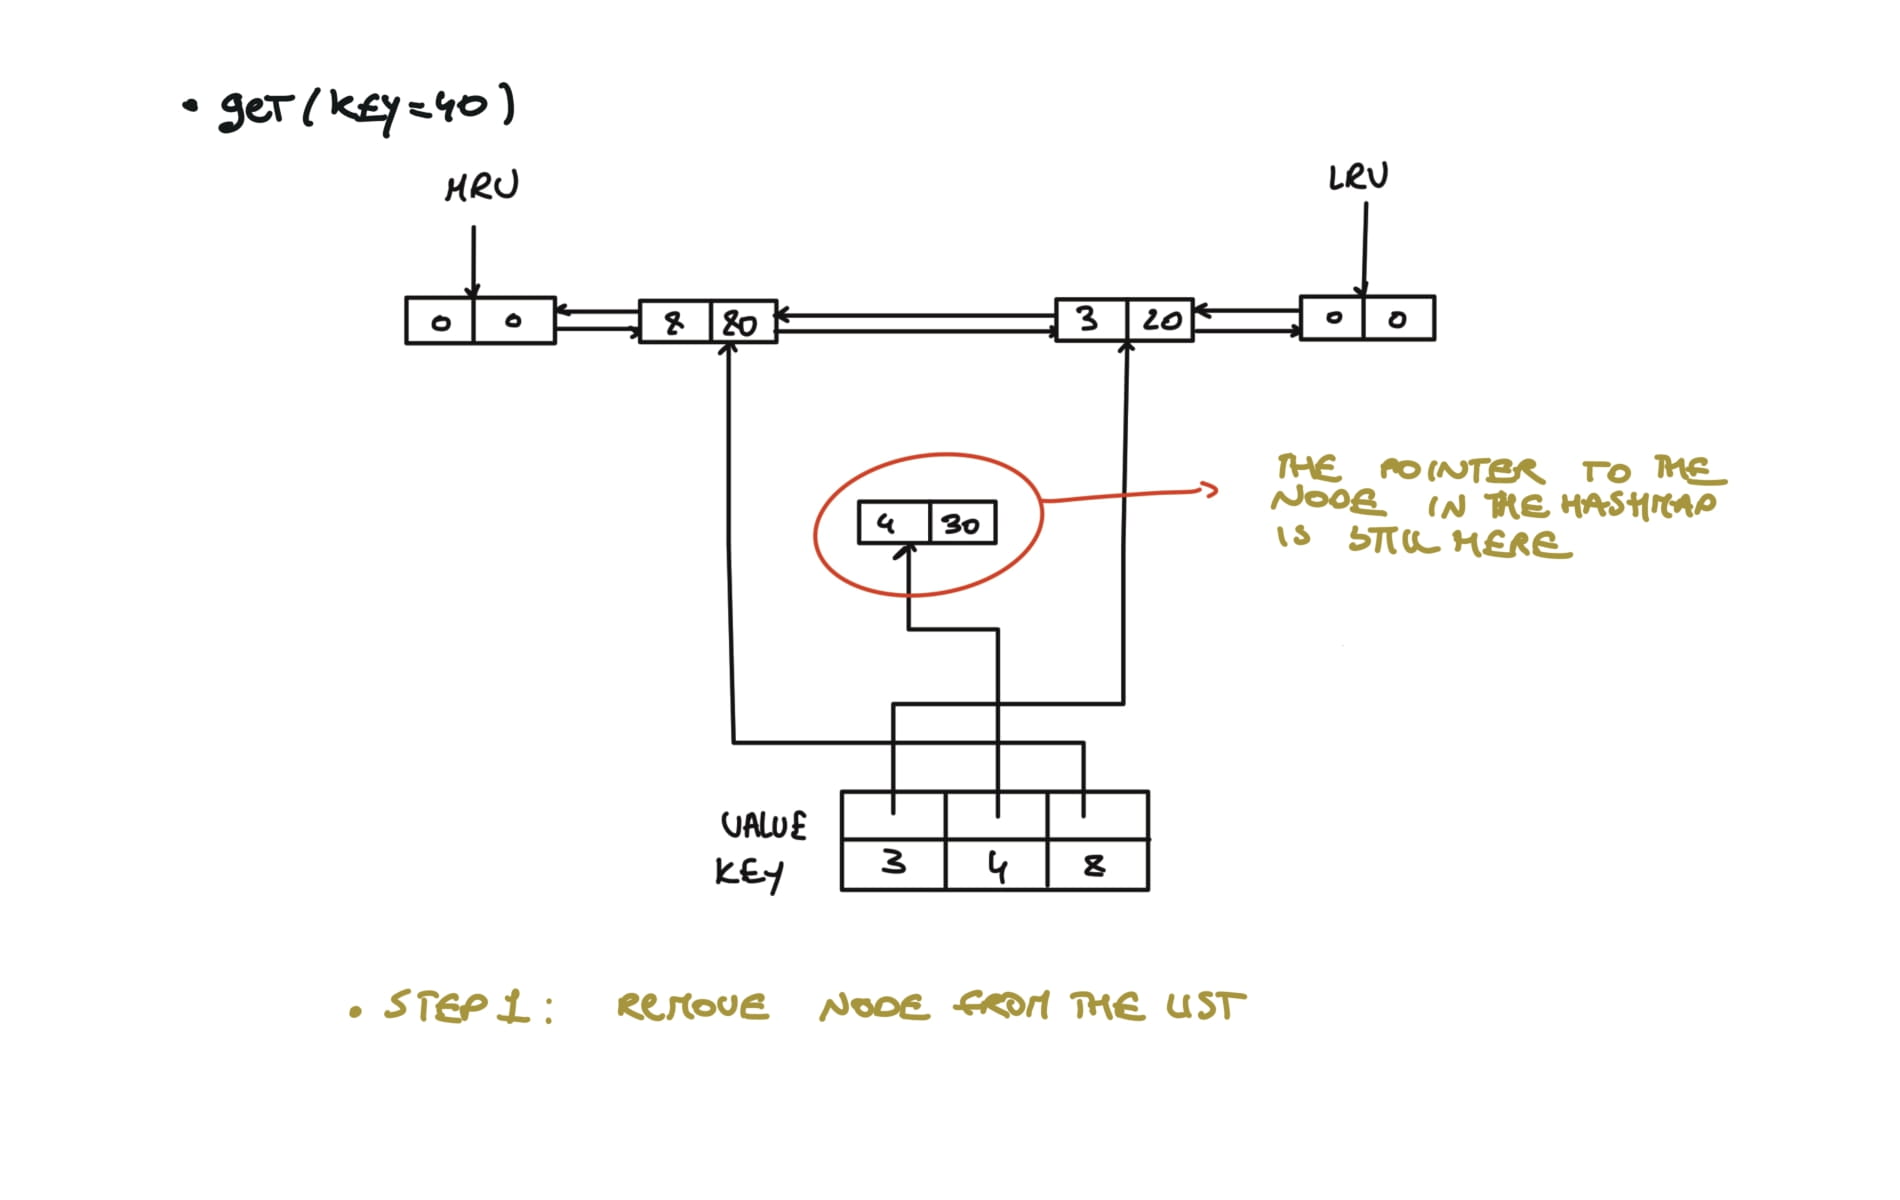 • get(key=40)
MRU
LRU
0 0
8 80
3 20
0 0
4 30
THE POINTER TO THE
NODE IN THE HASHMAP
IS STILL HERE
VALUE
KEY 3 4 8
• STEP 1: REMOVE NODE FROM THE LIST